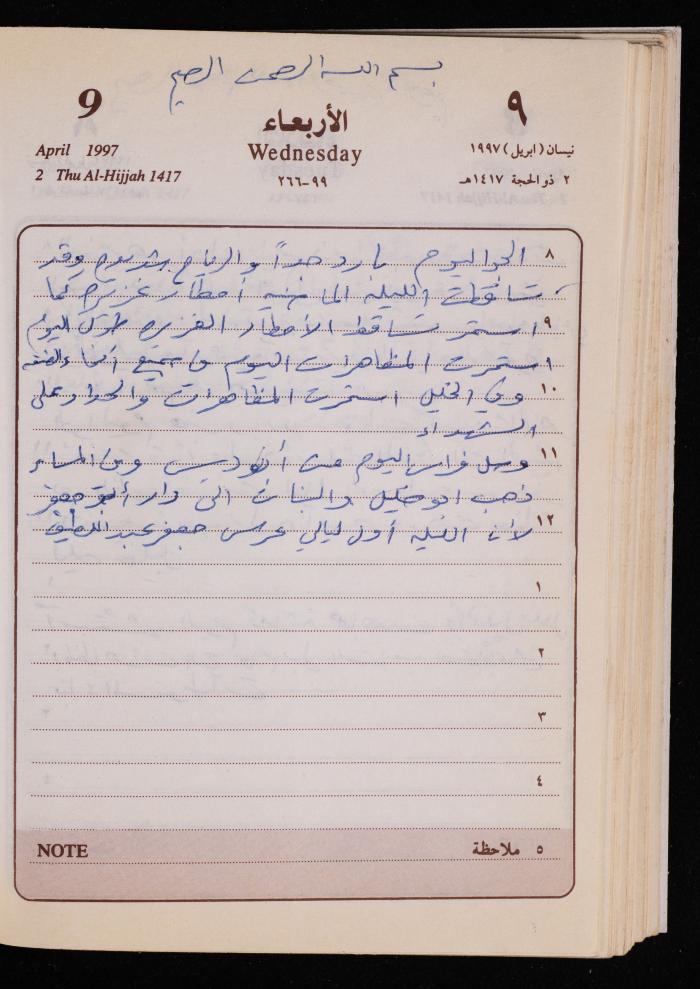 بسم الله الرحمن الرحيم
9 الأربعاء ٩
April 1997 Wednesday نيسان (ابريل) ١٩٩٧
2 Thu Al-Hijjah 1417 ٩٩-٢٦٦ ٢ ذو الحجة ١٤١٧هـ
٨ الجو اليوم بارد جداً والرياح شديدة وقد
تساقطت الليلة الماضية أمطار غزيرة كما
٩ استمر تساقط الأمطار الغزيرة طول اليوم
استمرت المظاهرات اليوم في جميع أنحاء الضفة
١٠ وفي الخليل استمرت المظاهرات والحداد على
الشهداء
١١ وصل فراس اليوم من أبوديس وفي المساء
ذهب ابو خليل والبنات الى دار أبو جعفر
١٢ لأن الليلة أول ليالي عرس جعفر عبد اللطيف
١
٢
٣
٤
NOTE ٥ ملاحظة